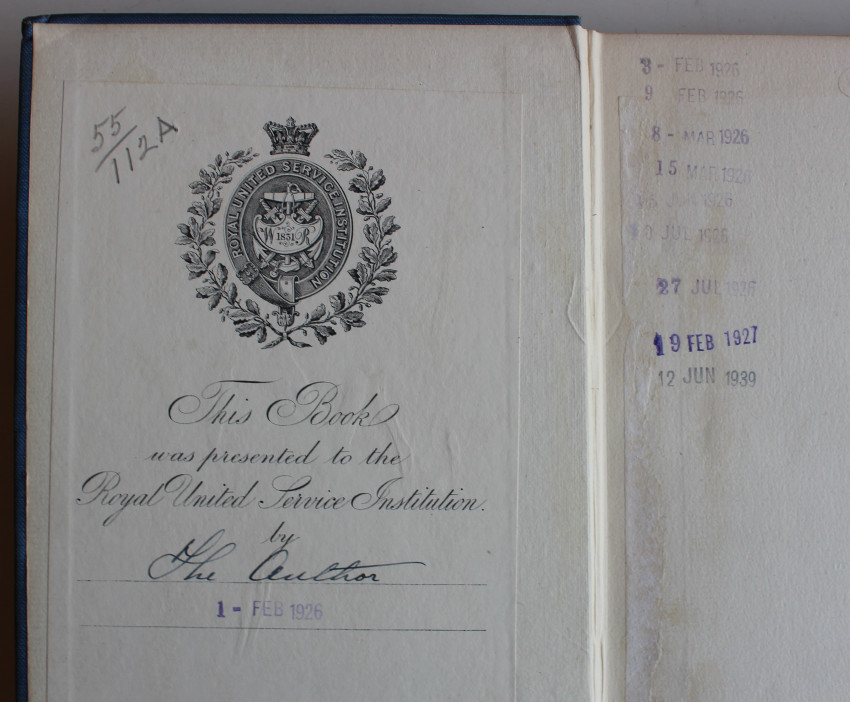 55/112A
ROYAL UNITED SERVICE INSTITUTION
W 1831 R
This Book
was presented to the
Royal United Service Institution.
by
The Author
1 - FEB 1926
3 - FEB 1926
9 FEB 1926
8 - MAR 1926
15 MAR 1926
JUN 1926
JUL 1926
27 JUL 1926
19 FEB 1927
12 JUN 1939